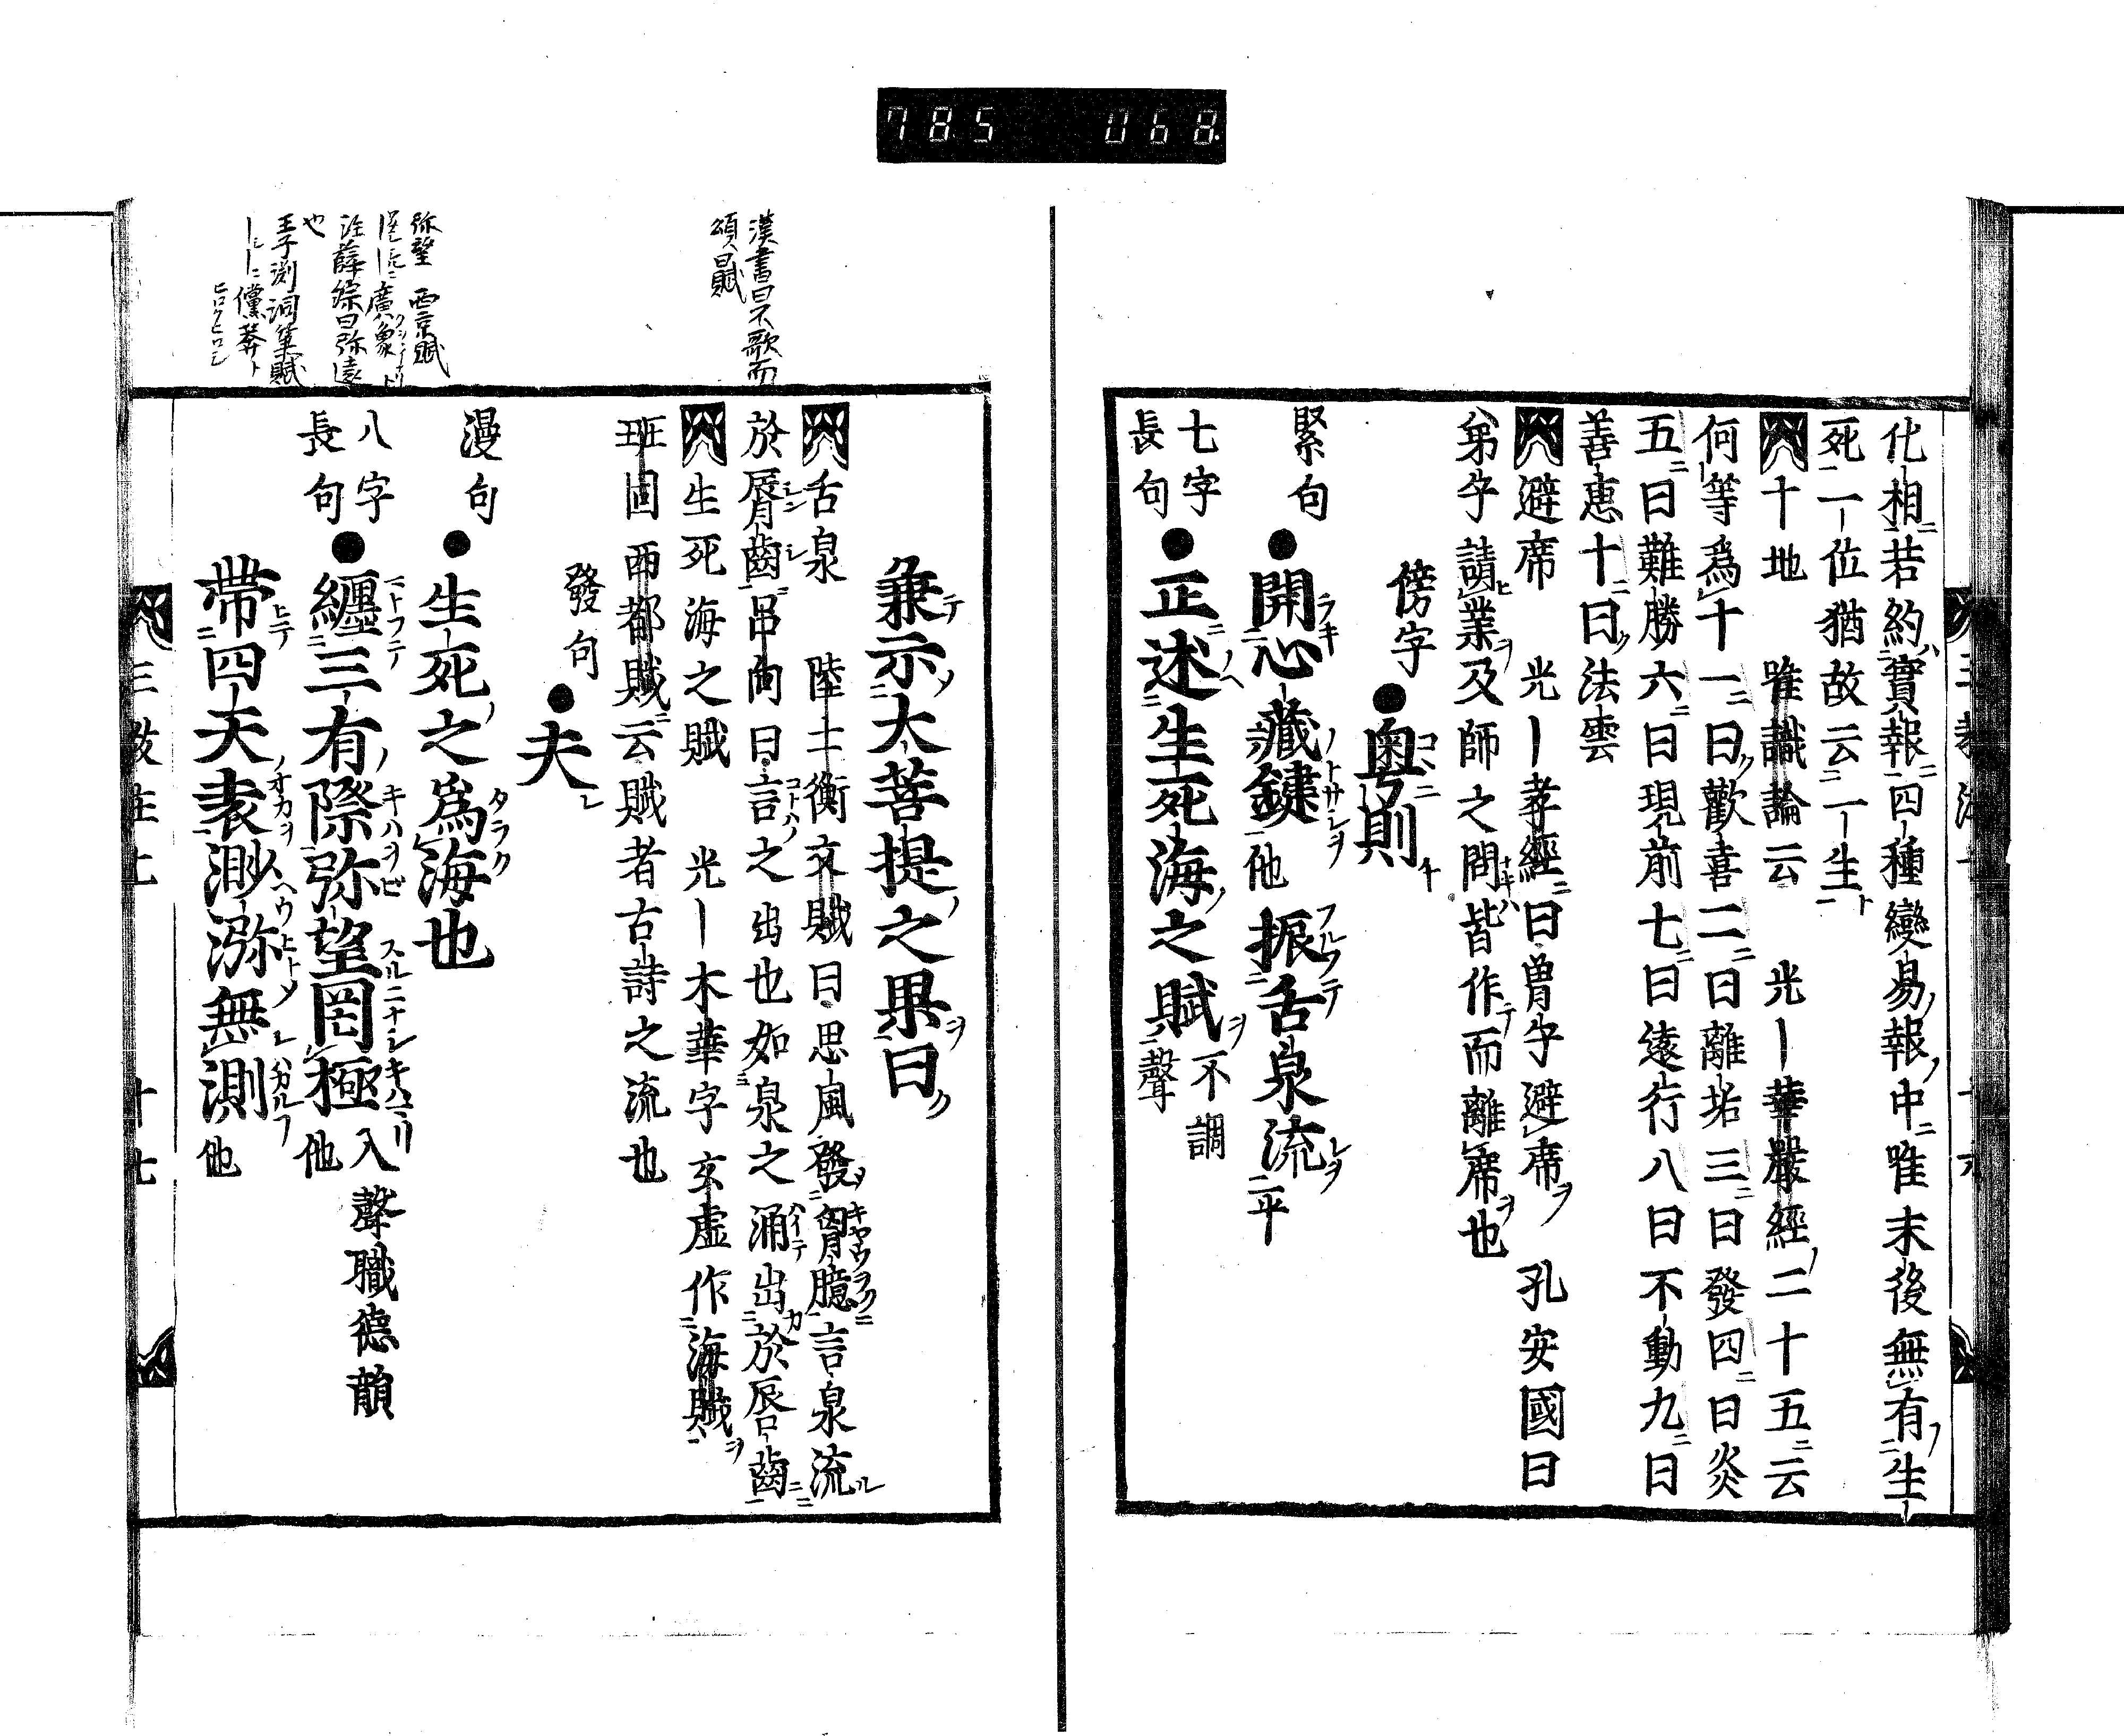 785 068
化相若約實報四種變易報中唯末後無有生
死一位猶故云一生
十地 唯識論云 光ー華嚴經二十五云
何等爲十一曰歡喜二曰離垢三曰發四曰炎
五曰難勝六曰現前七曰遠行八曰不動九曰
善惠十曰法雲
避席 光ー孝經曰曽子避席 孔安國曰
弟子請業及師之問皆作而離席也
傍字●粤則
緊句●開心藏鍵他振舌泉流平
七字長句●正述生死海之賦不調聲
兼示大菩提之果曰
舌泉 陸士衡文賦曰思風發胷臆言泉流
於脣齒呂向曰言之出也如泉之涌出於唇齒
生死海之賦 光ー木華字玄虚作海賦
班固西都賦云賦者古詩之流也
發句●夫
漫句●生死之爲海也
八字長句●纏三有際弥望罔極他入聲職德韻
帶四天表渺瀰無測他
三教 十七
漢書曰不歌而
頌曰賦
弥望 西京賦
注薛綜曰弥遠
也
王子淵洞簫賦